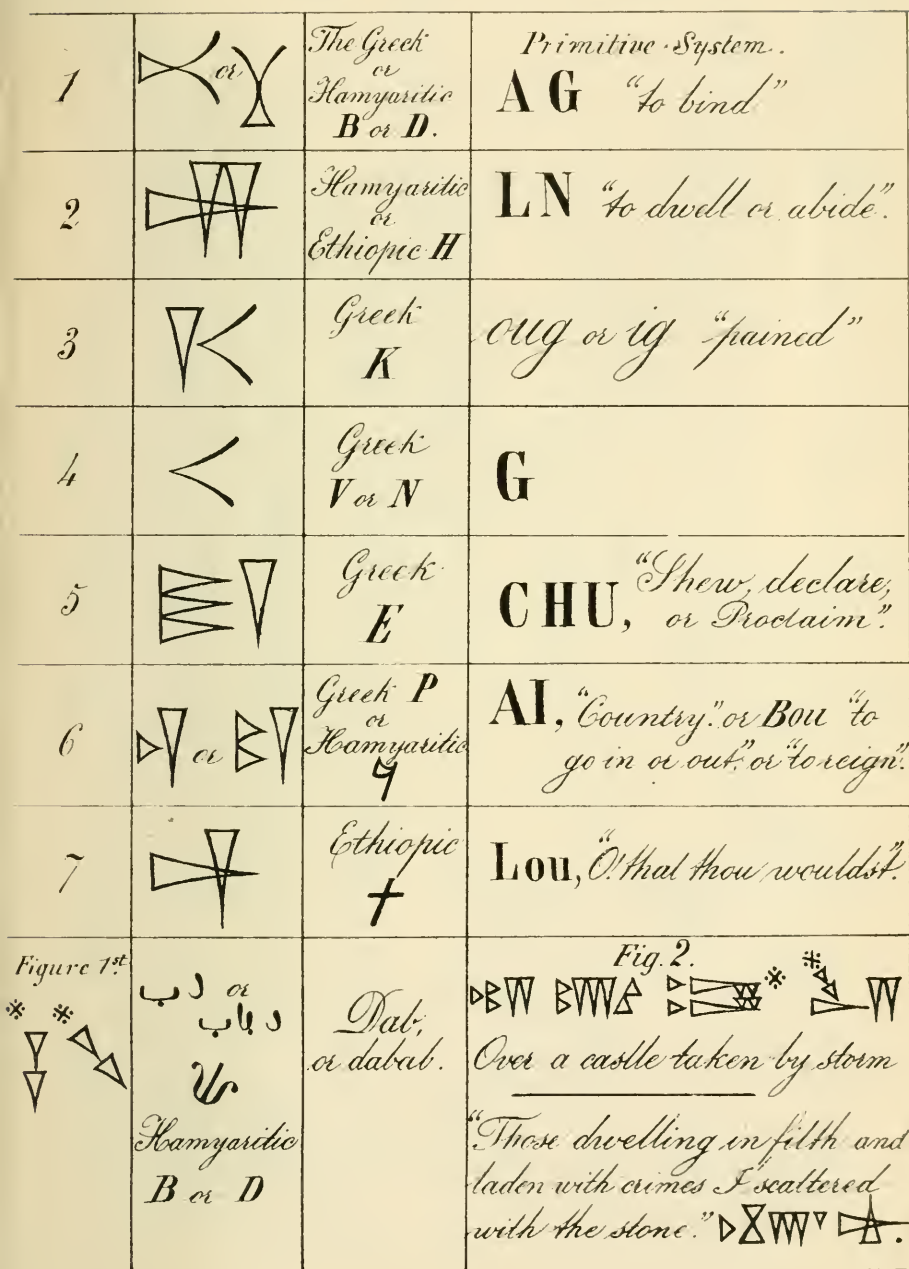 1
or
The Greek
or
Hamyaritic
B or D.
Primitive System.
AG "to bind"
2
Hamyaritic
or
Ethiopic H
LN "to dwell or abide".
3
Greek
K
oug or ig "pained"
4
Greek
V or N
G
5
Greek
E
CHU, "Shew, declare,
or Proclaim".
6
or
Greek P
or
Hamyaritic
AI, "Country." or Bou "to
go in or out." or "to reign".
7
Ethiopic
Lou, "O! that thou wouldst".
Figure 1st.
دب or
دباب
Hamyaritic
B or D
Dab,
or dabab.
Fig. 2.
Over a castle taken by storm
"Those dwelling in filth and
laden with crimes I scattered
with the stone."